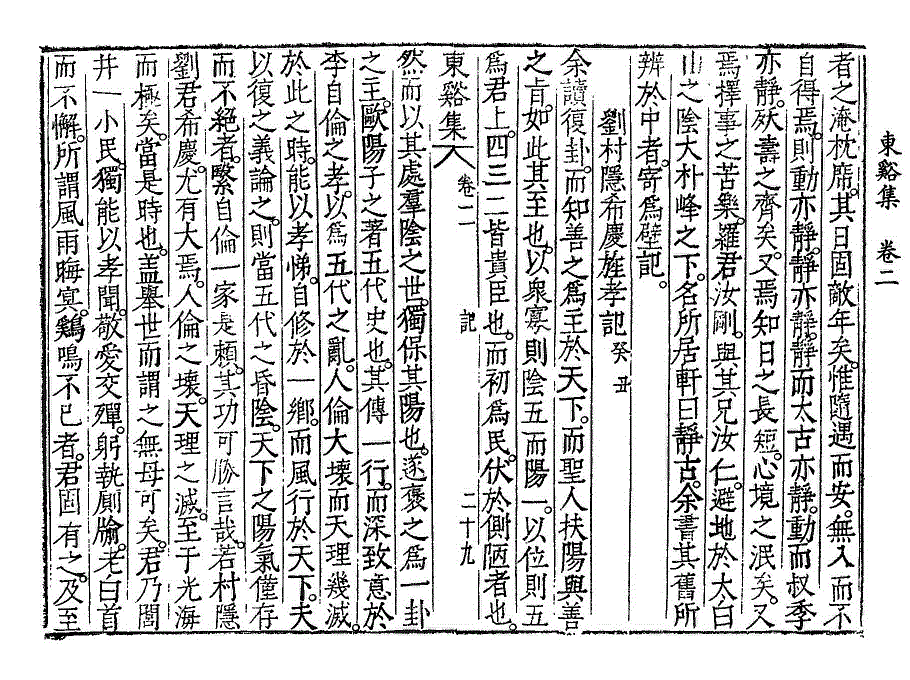 東谿集　卷二
者之淹枕席。其日固敵年矣。惟隨遇而安。無入而不
自得焉。則動亦靜。靜亦靜。靜而太古亦靜。動而叔季
亦靜。殀壽之齊矣。又焉知日之長短。心境之泯矣。又
焉擇事之苦樂。羅君汝剛。與其兄汝仁。避地於太白
山之陰大朴峰之下。名所居軒曰靜古。余書其舊所
辨於中者。寄爲壁記。
劉村隱希慶旌孝記 癸丑
余讀復卦。而知善之爲主於天下。而聖人扶陽與善
之㫖。如此其至也。以衆寡則陰五而陽一。以位則五
爲君上。四三二皆貴臣也。而初爲民。伏於側陋者也。
東谿集　卷二　記　二十九
然而以其處羣陰之世。獨保其陽也。遂褒之爲一卦
之主。歐陽子之著五代史也。其傳一行。而深致意於
李自倫之孝。以爲五代之亂。人倫大壞而天理幾滅。
於此之時。能以孝悌。自修於一鄉。而風行於天下。夫
以復之義論之。則當五代之昏陰。天下之陽氣僅存
而不絕者。繄自倫一家是賴。其功可勝言哉。若村隱
劉君希慶。尤有大焉。人倫之壞。天理之滅。至于光海
而極矣。當是時也。盖舉世而謂之無母可矣。君乃閭
井一小民。獨能以孝聞。敬愛交殫。躬執厠牏。老白首
而不懈。所謂風雨晦冥。鷄鳴不已者。君固有之。及至